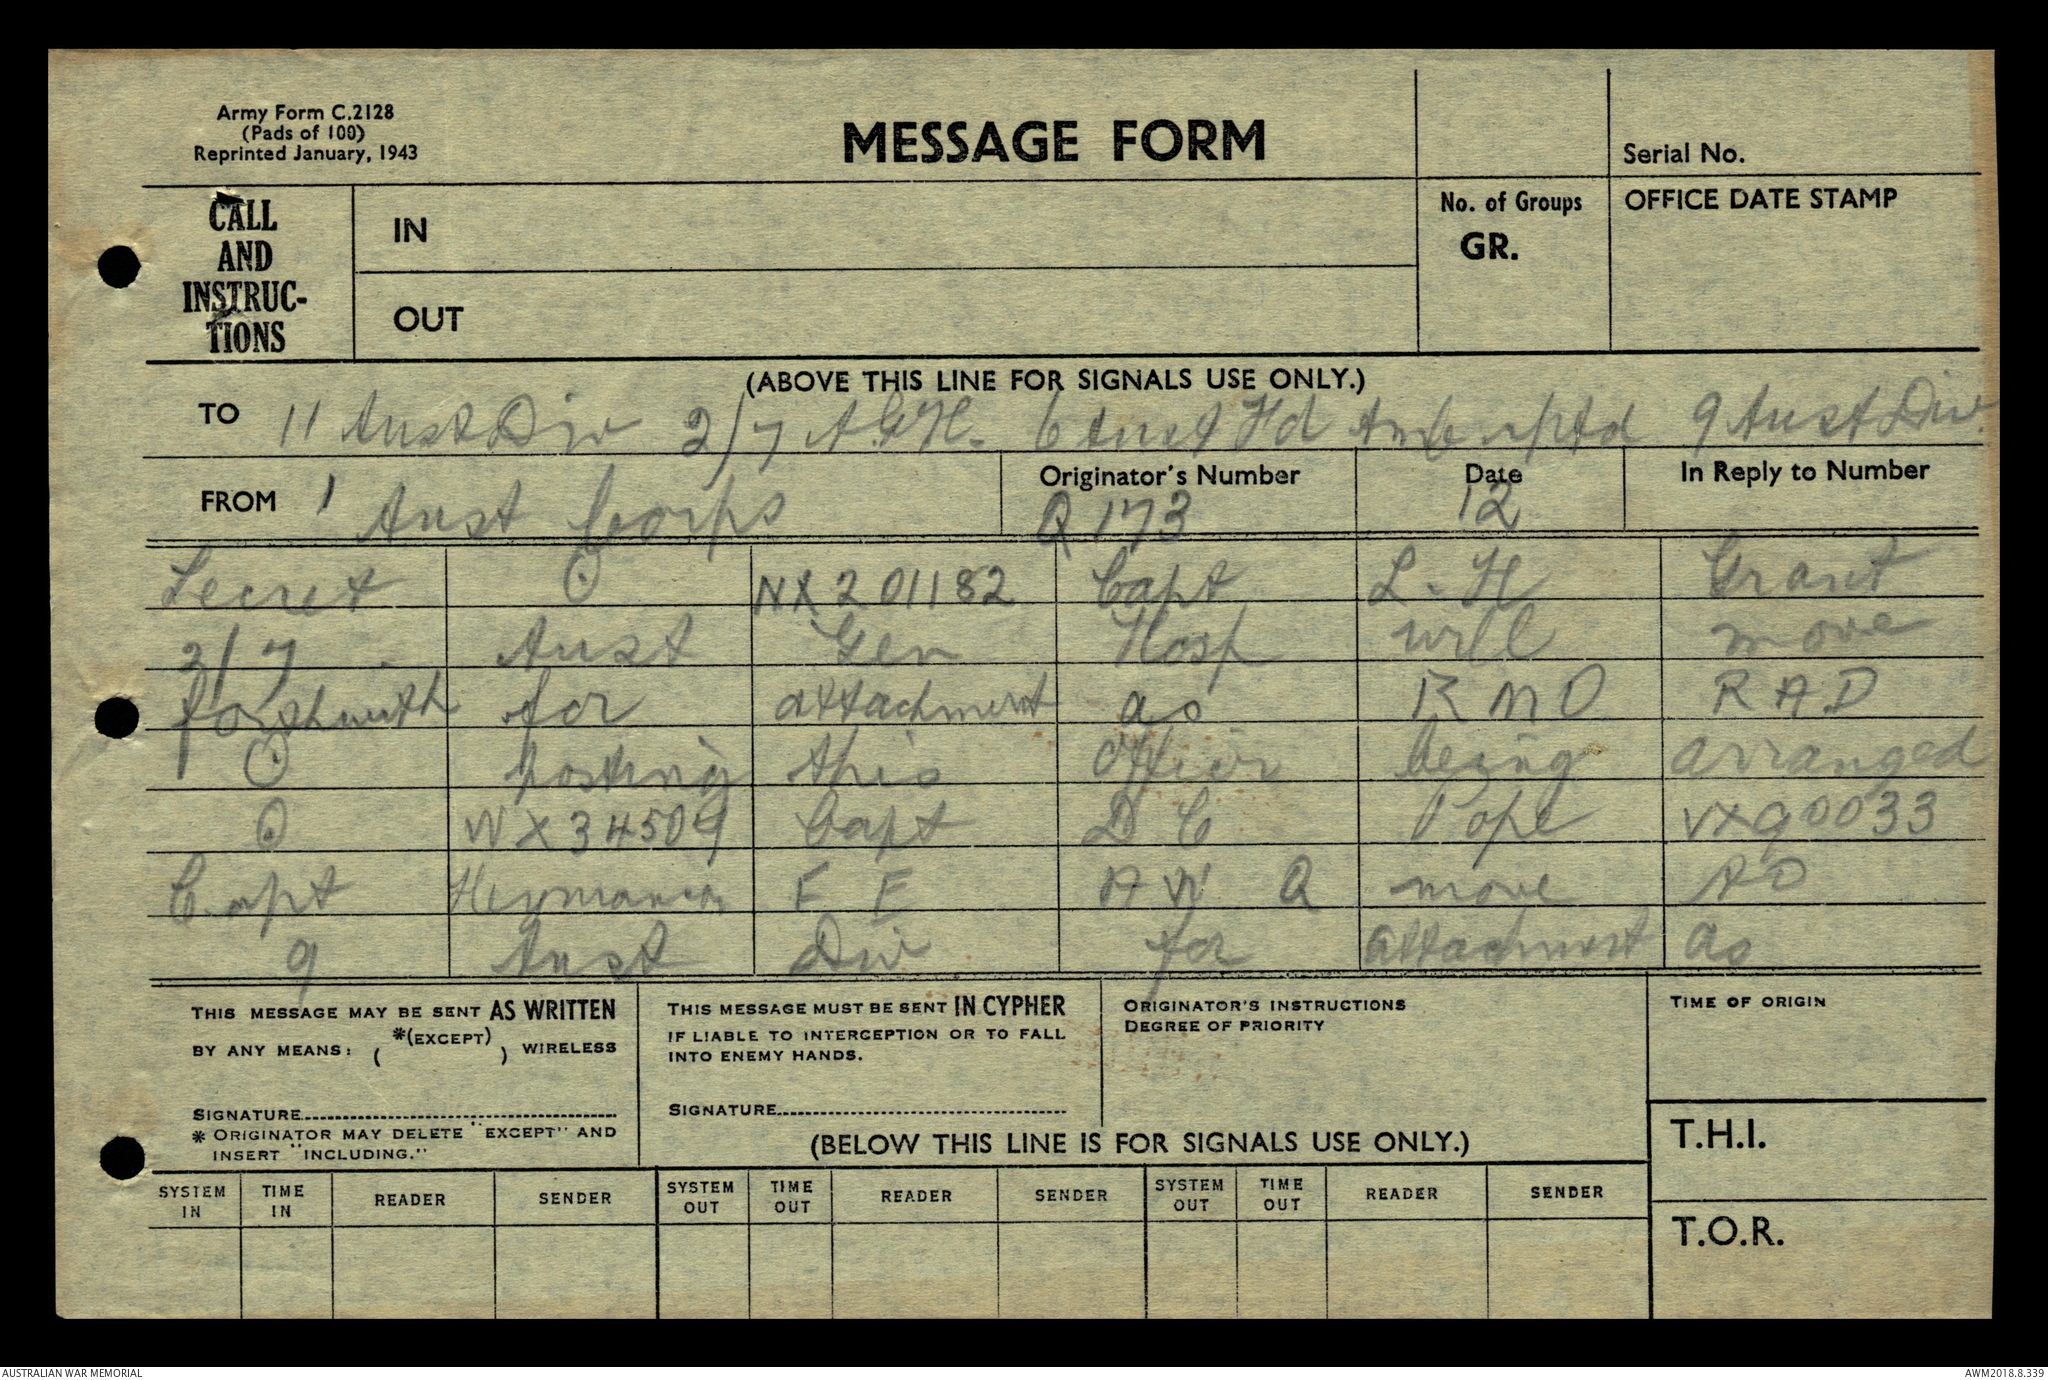 Army Form C.2128
(Pads of 100)
Reprinted January, 1943
MESSAGE FORM
Serial No.
CALL
AND
INSTRUC-
TIONS
IN
OUT
No. of Groups
GR.
OFFICE DATE STAMP
(ABOVE THIS LINE FOR SIGNALS USE ONLY.)
TO 11 Aust Div 2/7 A.G.H. 6 Aust Fd Amb rptd 9 Aust Div.
FROM 1 Aust Corps
Originator's Number
Q 173
Date
12
In Reply to Number
Secret ⊙ NX201182 Capt L.H Grant
2/7 Aust Gen Hosp will move
forthwith for attachment as RMO RAD
⊙ posting this officer being arranged
⊙ WX34509 Capt D C Pope VX90033
Capt F F A W Q move AD
9 Aust Div for attachment as
THIS MESSAGE MAY BE SENT AS WRITTEN
BY ANY MEANS: *(EXCEPT) ( ) WIRELESS
SIGNATURE
* ORIGINATOR MAY DELETE "EXCEPT" AND
INSERT "INCLUDING."
THIS MESSAGE MUST BE SENT IN CYPHER
IF LIABLE TO INTERCEPTION OR TO FALL
INTO ENEMY HANDS.
SIGNATURE
ORIGINATOR'S INSTRUCTIONS
DEGREE OF PRIORITY
TIME OF ORIGIN
(BELOW THIS LINE IS FOR SIGNALS USE ONLY.)
T.H.I.
SYSTEM IN TIME IN READER SENDER SYSTEM OUT TIME OUT READER SENDER SYSTEM OUT TIME OUT READER SENDER
T.O.R.
AUSTRALIAN WAR MEMORIAL
AWM2018.8.339